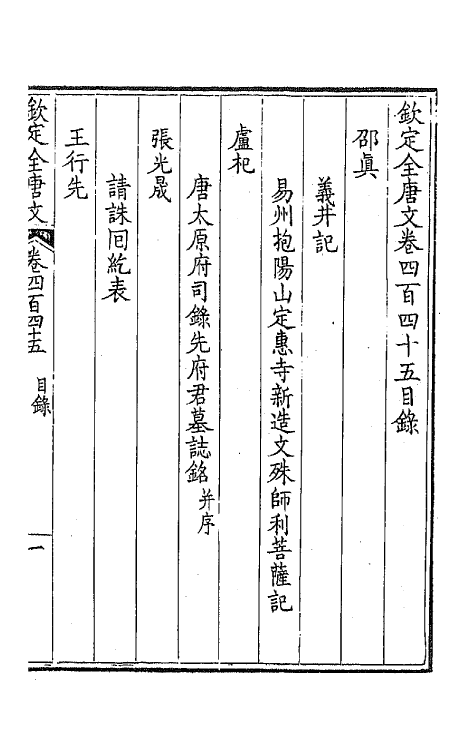 欽定全唐文卷四百四十五目錄
邵眞
義井記
易州抱陽山定惠寺新造文殊師利菩薩記
盧杞
唐太原府司錄先府君墓誌銘并序
張光晟
請誅囘紇表
王行先
欽定全唐文 卷四百四十五 目錄 一